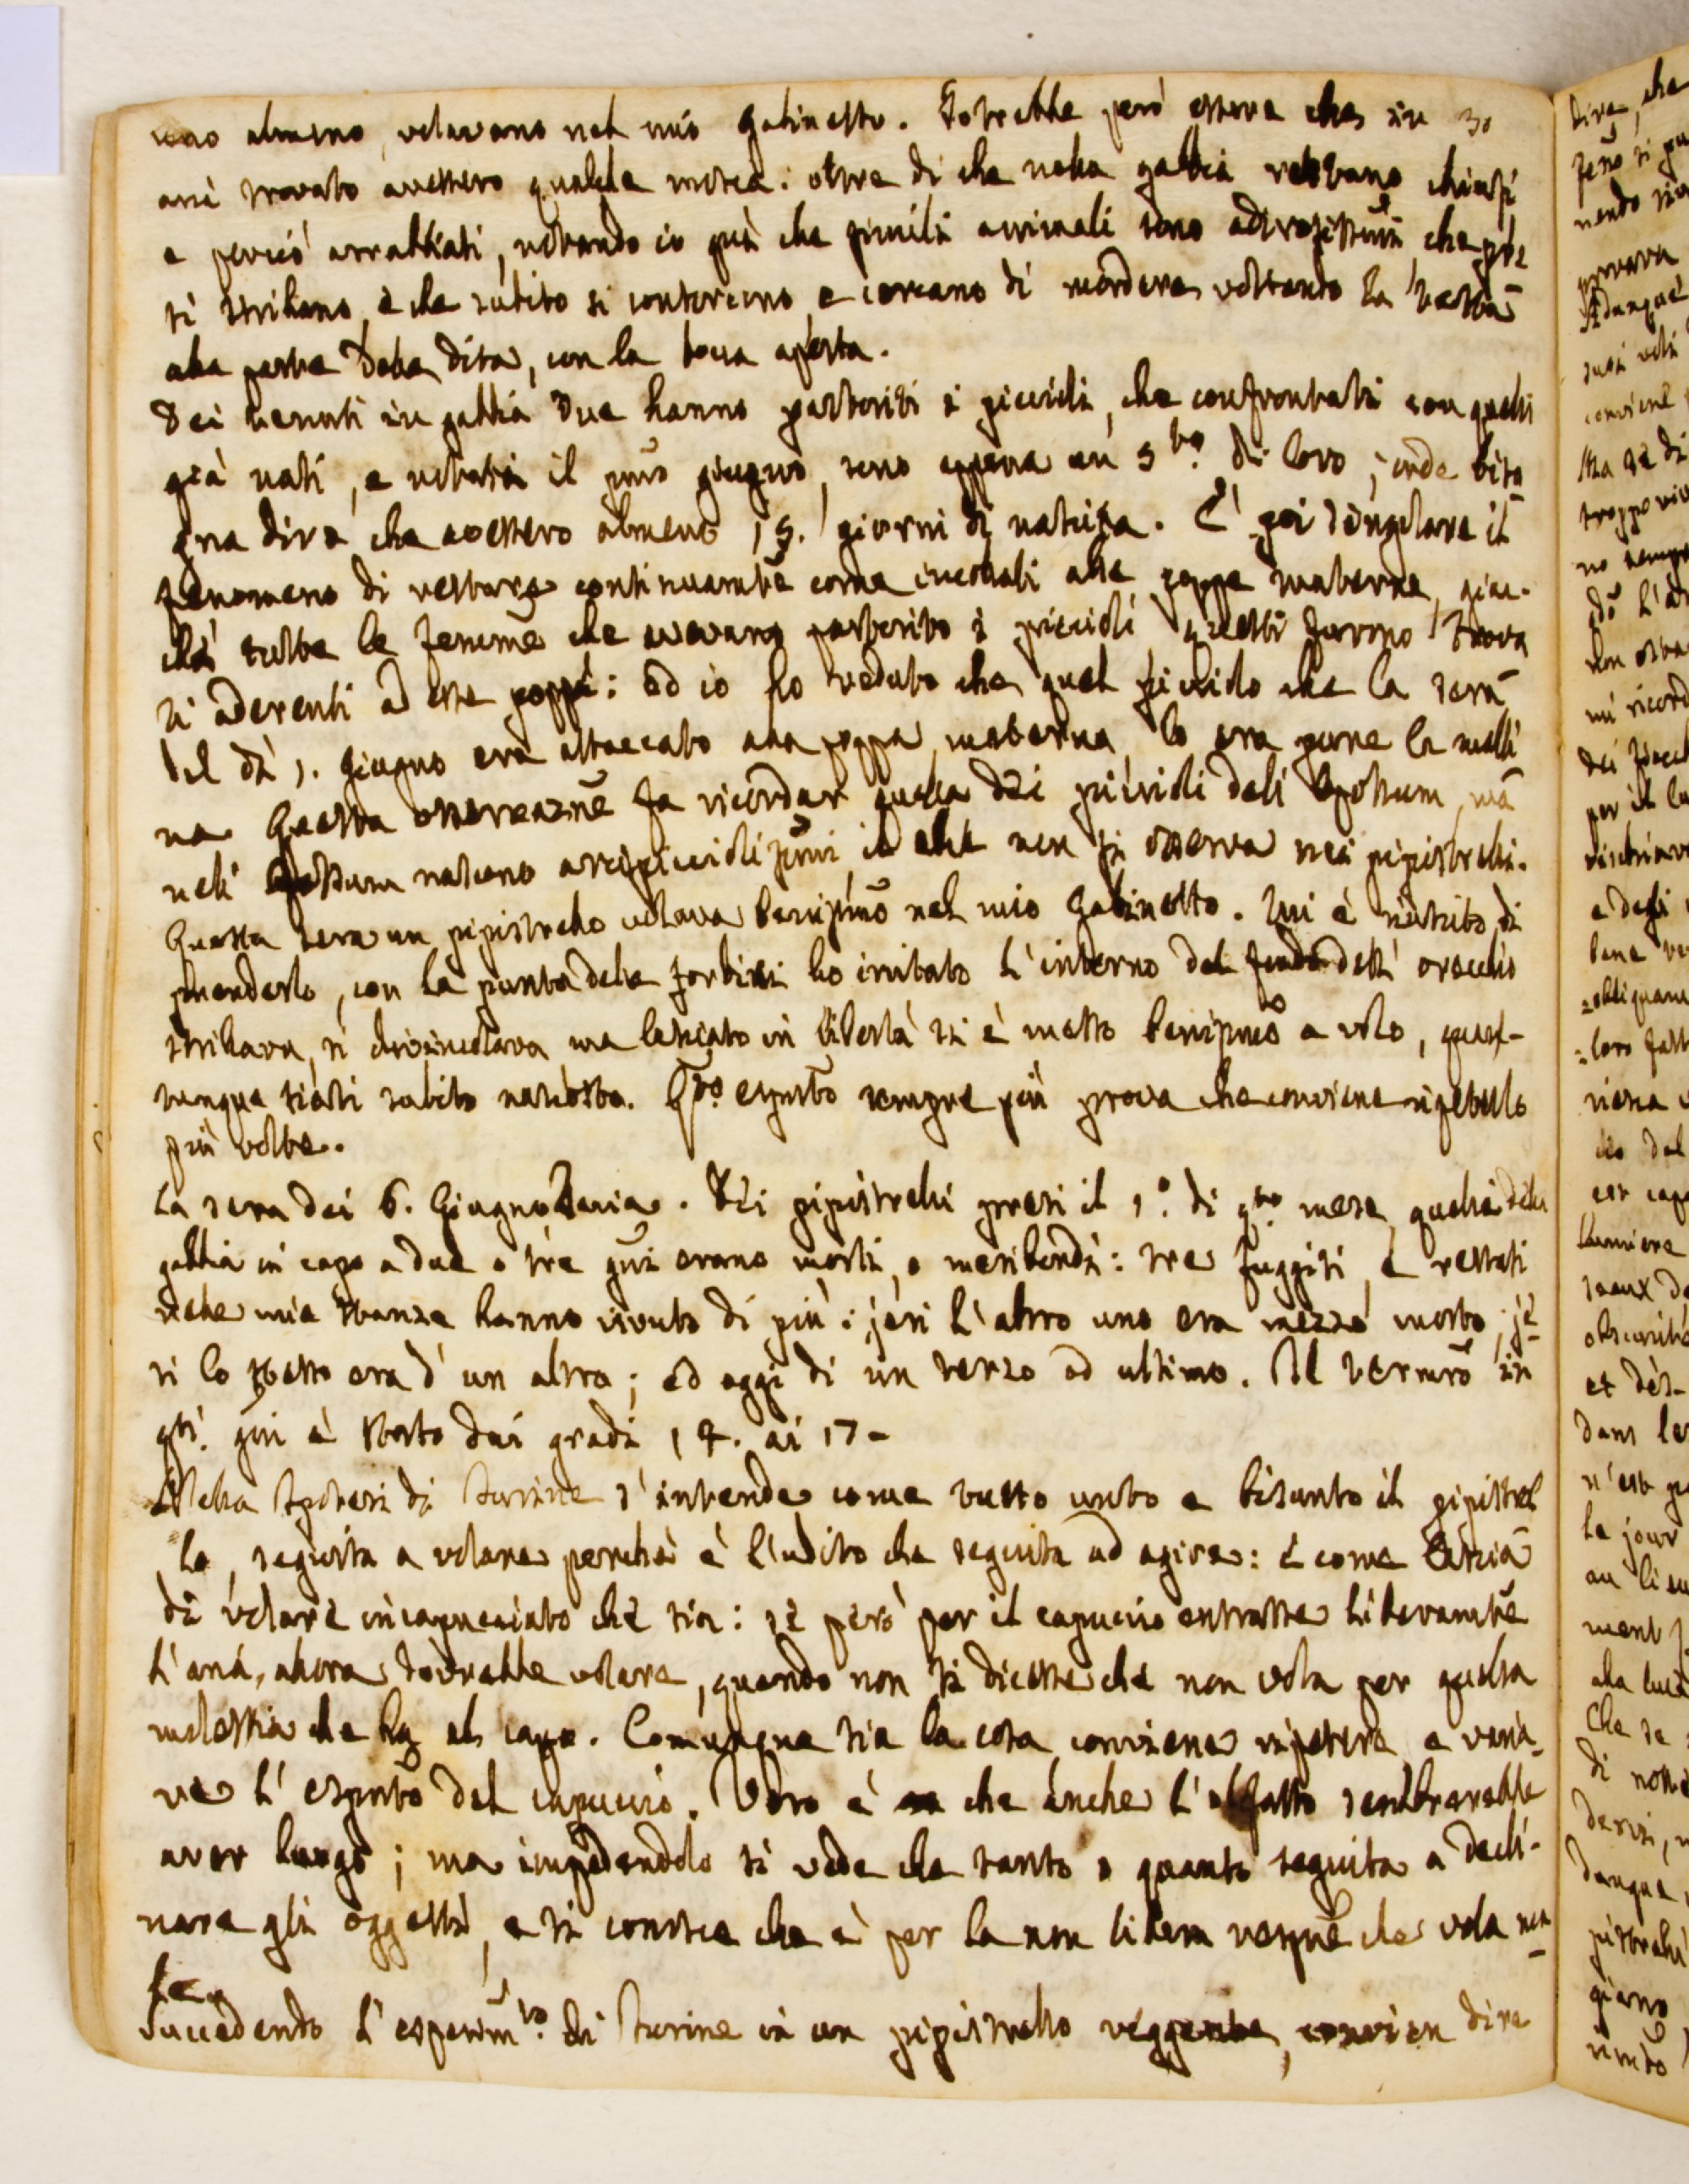 uno almeno, volavano nel mio Gabinetto. Potrebbe però essere che in 30
ore trovato avessero qualche mosca: oltre di che nella gabbia restano chiusi
e perciò arrabbiati, notando io quì che simili animali sono adirosissimi, che presi
si strillano, e che subito si contorcono e cercano di mordere voltando la testa
alla parte delle dita, con la bocca aperta.
Dei tenuti in gabbia due hanno partoriti i piccioli, che confrontati con quelli
già nati, e notati il pmo giugno, sono appena un 3zo. di loro; onde biso
gna dire che avessero almeno 15. giorni di nascita. E' poi singolare il
fenomeno di restare continuamte come incollati alle poppe materne, giac-
chè tutte le femine che avevano partorito i piccioli questi furono trova
ti aderenti ad esse poppe: ed io ho veduto che quel picciolo che la sera
del dì 1. giugno era attaccato alla poppa materna, lo era pure la matti
na. Questa osservazne fa ricordar quella dei piccioli deli Opossum, ma
neli Opossum nascono arcipicciolissimi, il che non si osserva nei pipistrelli.
Questa sera un pipistrello volava benissimo nel mio Gabinetto. Mi è riuscito di
prenderlo, con la punta delle forbici ho irritato l'interno del fondo dell' orecchio
strillava, si divincolava ma lasciato in libertà si è messo benissimo a volo, quan-
tunque siasi subito nascosto. Qto. esprmto sempre più prova che conviene ripeterlo
più volte.
La sera dei 6. Giugno Pavia. Dei pipistrelli presi il 1°. di qto. mese, quelli della
gabbia in capo a due o tre gni erano morti, o moribondi: tre fuggiti, e restati
nelle mie stanze hanno vivuto di più: jeri l'altro uno era mezzo morto, je
ri lo stesso era d' un altro; ed oggi di un terzo ed ultimo. Il termro in
qti. gni è stato dai gradi 14. ai 17-
Nella Ipotesi di Jurine s'intende come tutto unto e bisunto il pipistrel
lo, seguita a volare perchè è l'udito che seguita ad agire: e come lascia
di volare incapucciato che sia: se però per il capuccio entrasse liberamte
l'aria, allora dovrebbe volare, quando non si dicesse che non vola per quella
molestia che ha al capo. Comunque sia la cosa conviene ripetere e varia
re l' esprmto del capuccio. Vero è che anche l'olfatto sembrerebbe
aver luogo; ma impedendolo si vede che tanto o quanto seguita a decli-
nare gli oggetti, e si conosce che è per la non libera respne che vola ma
le.
Succedendo l' esperimto. di Jurine in un pipistrello veggente, convien dire